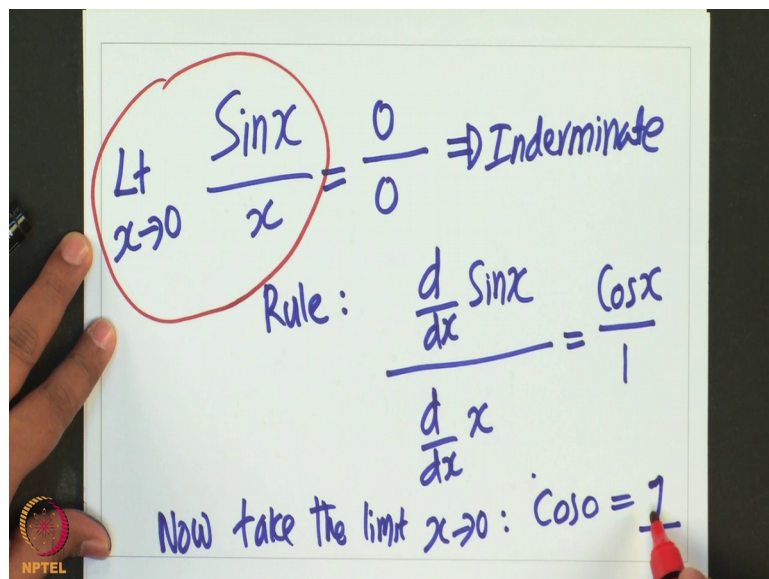 Lt x→0 Sinx / x = 0 / 0 ⇒ Inderminate
Rule : d/dx Sinx / d/dx x = Cosx / 1
Now take the limit x→0 : Cos0 = 1
NPTEL